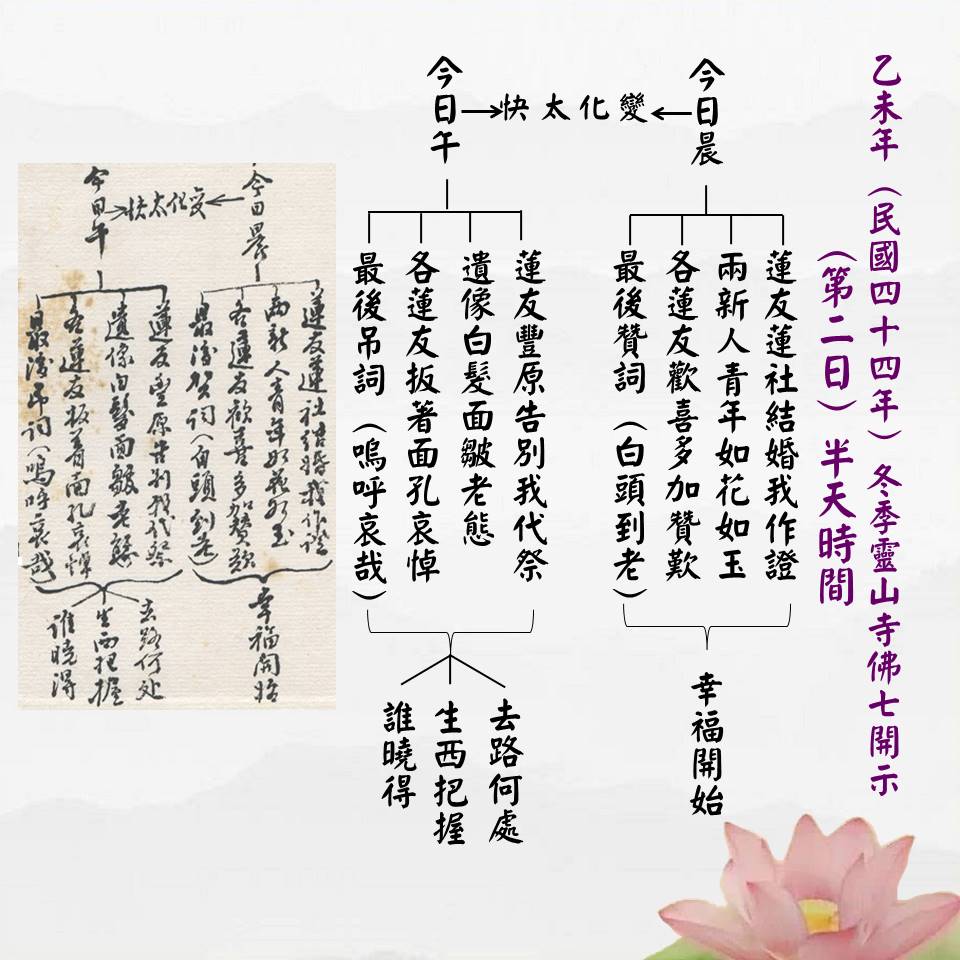 乙未年（民國四十四年）冬季靈山寺佛七開示
（第二日）半天時間
今日晨
變化太快
今日午
蓮友蓮社結婚我作證
兩新人青年如花如玉
各蓮友歡喜多加贊歎
最後贊詞（白頭到老）
幸福開始
蓮友豐原告別我代祭
遺像白髮面皺老態
各蓮友扳著面孔哀悼
最後吊詞（嗚呼哀哉）
去路何處
生西把握
誰曉得
今日晨
变化太快
今日午
蓮友蓮社结婚我作證
兩新人青年如花如玉
各蓮友歡喜多加贊歎
最後贺词（白頭到老）
幸福開始
蓮友豐原告别我代祭
遺像白髮面皺老態
各蓮友扳着面孔哀悼
最後吊词（嗚呼哀哉）
去路何处
生西把握
谁曉得